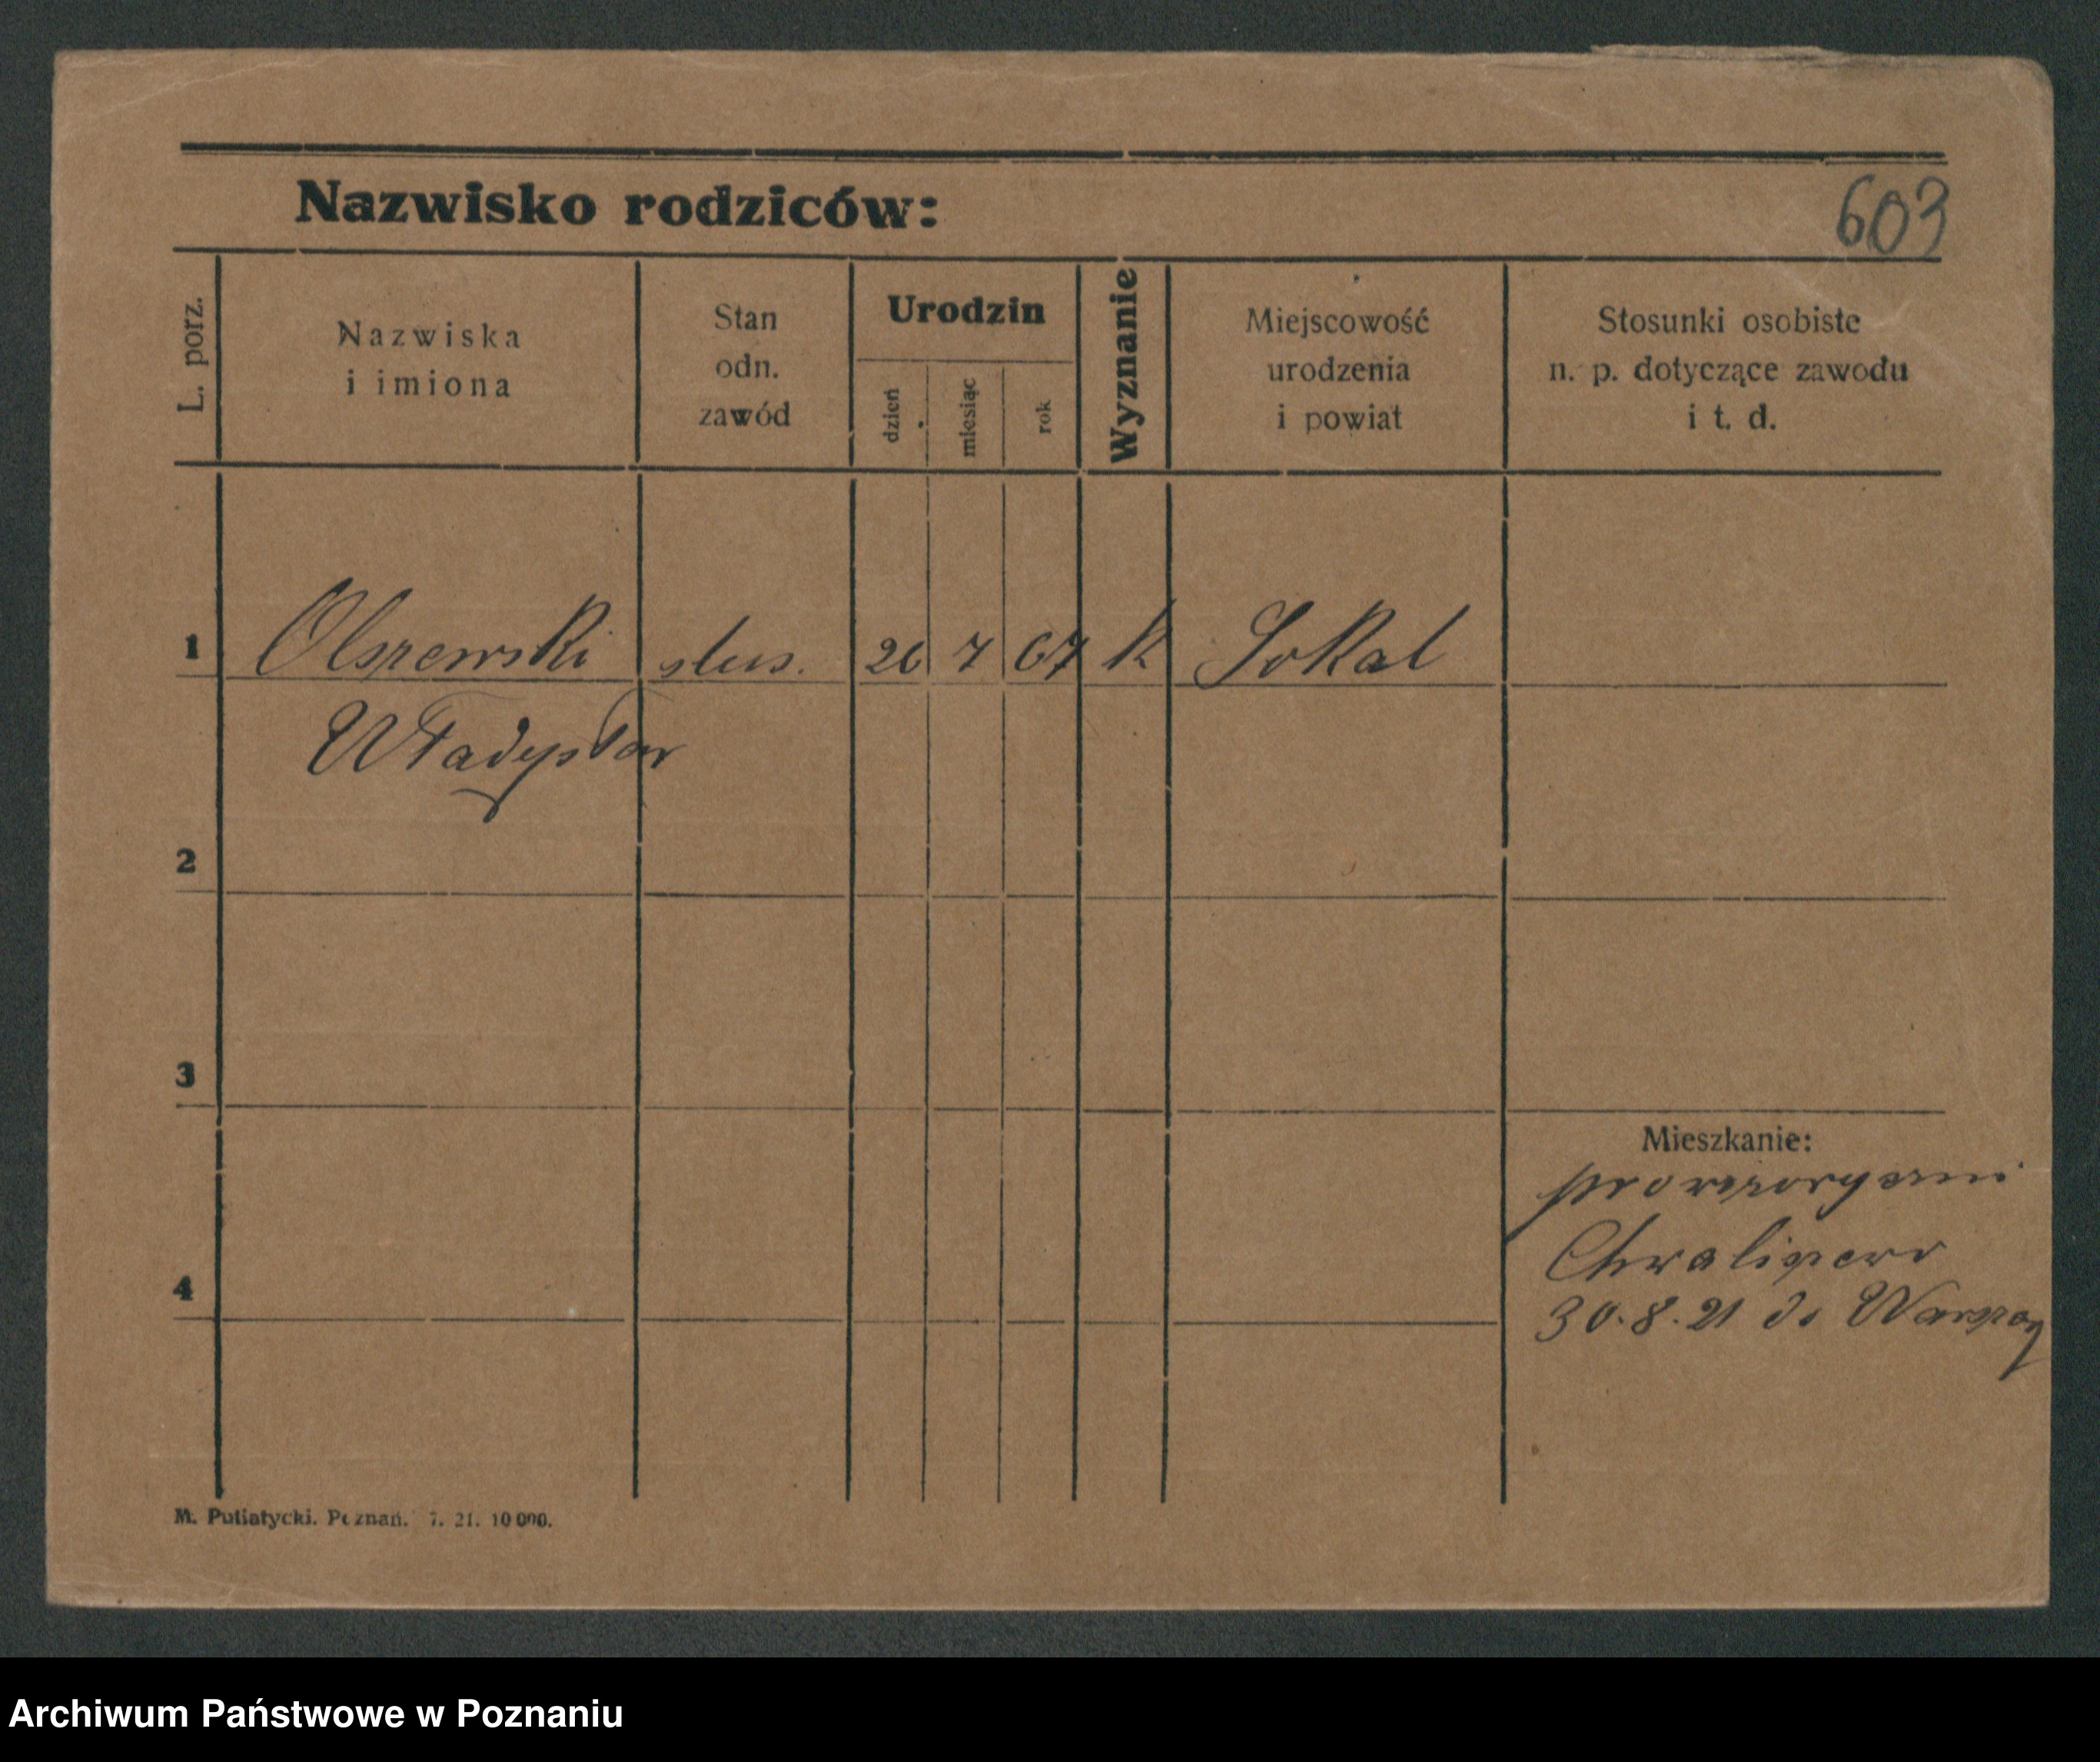 Nazwisko rodziców:
603
L. porz.
Nazwiska
i imiona
Stan
odn.
zawód
Urodzin
dzień
miesiąc
rok
Wyznanie
Miejscowość
urodzenia
i powiat
Stosunki osobiste
n. p. dotyczące zawodu
i t. d.
1 Olszewski ślus. 26 7 07 k Sokal
Władysław
2
3
4
Mieszkanie:
30.8.21 do
M. Putiatycki. Poznań. 7. 21. 10 000.
Archiwum Państwowe w Poznaniu